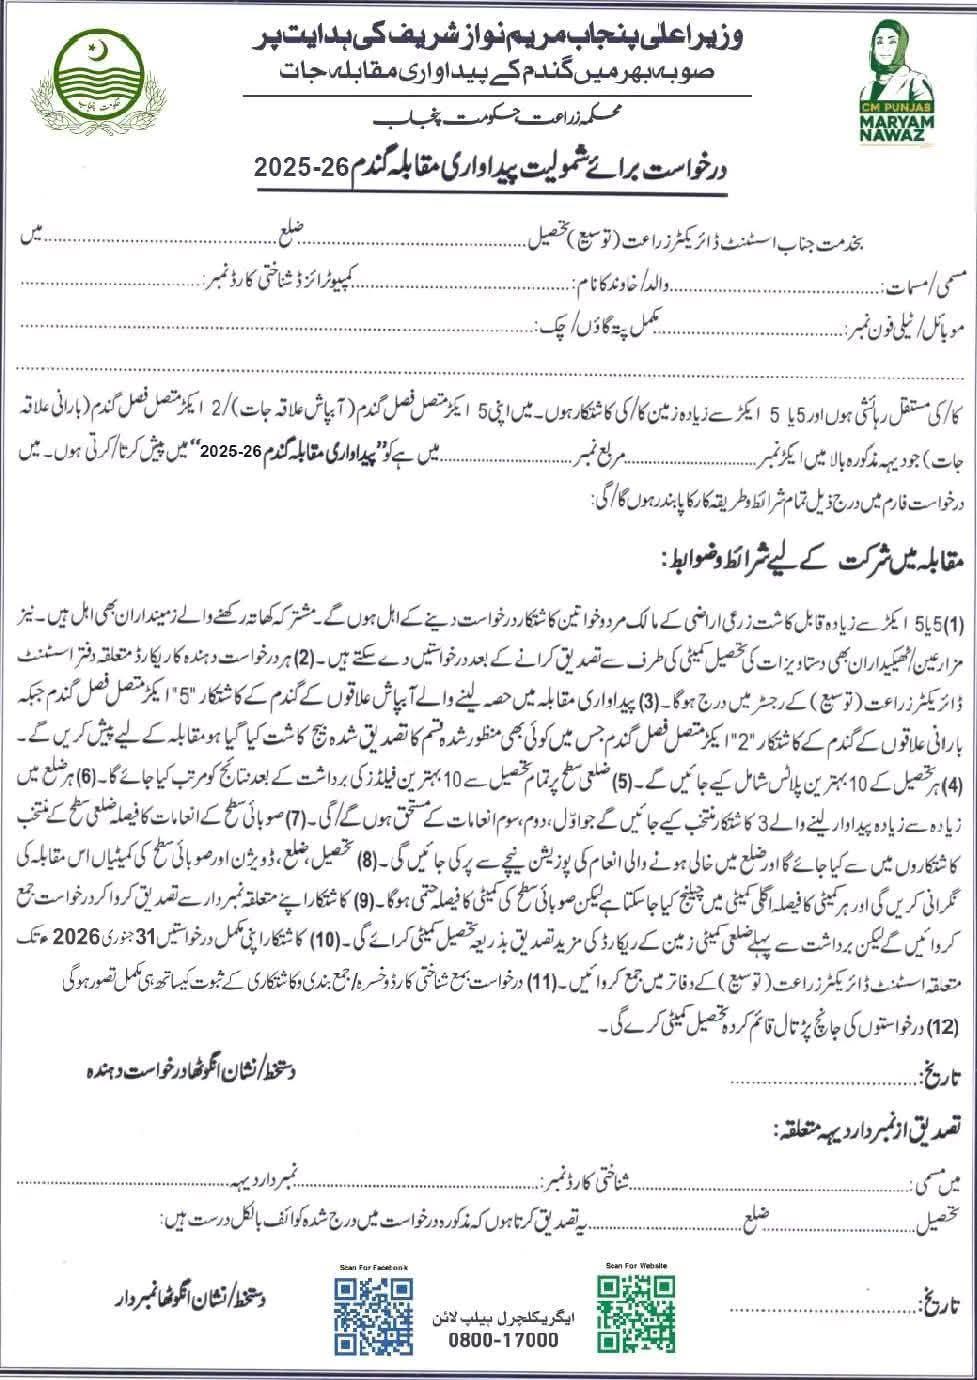 وزیراعلیٰ پنجاب مریم نواز شریف کی ہدایت پر
صوبہ بھر میں گندم کے پیداواری مقابلہ جات
محکمہ زراعت حکومت پنجاب
حکومت پنجاب
CM PUNJAB
MARYAM
NAWAZ
درخواست برائے شمولیت پیداواری مقابلہ گندم 26-2025
بخدمت جناب اسسٹنٹ ڈائریکٹر زراعت (توسیع) تحصیل........................ضلع........................میں
مسمی/مسمات:........................والد/خاوند کا نام:........................کمپیوٹرائزڈ شناختی کارڈ نمبر:........................
موبائل/ٹیلی فون نمبر:........................مکمل پتہ گاؤں/چک:........................
........................
کا/کی مستقل رہائشی ہوں اور 5 یا 5 ایکڑ سے زیادہ زمین کا/کی کاشتکار ہوں۔ میں اپنی 5 ایکڑ متصل فصل گندم (آبپاش علاقہ جات)/2 ایکڑ متصل فصل گندم (بارانی علاقہ
جات) جو دیہہ مذکورہ بالا میں ایکڑ نمبر........................مربع نمبر........................میں ہے کو "پیداواری مقابلہ گندم 26-2025" میں پیش کرتا/کرتی ہوں۔ میں
درخواست فارم میں درج ذیل تمام شرائط و طریقہ کار کا پابند رہوں گا/گی:
مقابلہ میں شرکت کے لیے شرائط و ضوابط:
(1) 5 یا 5 ایکڑ سے زیادہ قابل کاشت زرعی اراضی کے مالک مرد و خواتین کاشتکار درخواست دینے کے اہل ہوں گے۔ مشترکہ کھاتہ رکھنے والے زمینداران بھی اہل ہیں۔ نیز
مزارعین/ٹھیکیداران بھی دستاویزات کی تحصیل کمیٹی کی طرف سے تصدیق کرانے کے بعد درخواستیں دے سکتے ہیں۔ (2) ہر درخواست دہندہ کا ریکارڈ متعلقہ دفتر اسسٹنٹ
ڈائریکٹر زراعت (توسیع) کے رجسٹر میں درج ہوگا۔ (3) پیداواری مقابلہ میں حصہ لینے والے آبپاش علاقوں کے گندم کے کاشتکار "5" ایکڑ متصل فصل گندم جبکہ
بارانی علاقوں کے گندم کے کاشتکار "2" ایکڑ متصل فصل گندم جس میں کوئی بھی منظور شدہ قسم کا تصدیق شدہ بیج کاشت کیا گیا ہو مقابلہ کے لیے پیش کریں گے۔
(4) ہر تحصیل کے 10 بہترین پلاٹس شامل کیے جائیں گے۔ (5) ضلعی سطح پر تمام تحصیل سے 10 بہترین فیلڈز کی برداشت کے بعد نتائج کو مرتب کیا جائے گا۔ (6) ہر ضلع میں
زیادہ سے زیادہ پیداوار لینے والے 3 کاشتکار منتخب کیے جائیں گے جو اوّل، دوم، سوم انعامات کے مستحق ہوں گے/گی۔ (7) صوبائی سطح کے انعامات کا فیصلہ ضلعی سطح کے منتخب
کاشتکاروں میں سے کیا جائے گا اور ضلع میں خالی ہونے والی انعام کی پوزیشن نیچے سے پر کی جائیں گی۔ (8) تحصیل، ضلع، ڈویژن اور صوبائی سطح کی کمیٹیاں اس مقابلہ کی
نگرانی کریں گی اور ہر کمیٹی کا فیصلہ اگلی کمیٹی میں چیلنج کیا جا سکتا ہے لیکن صوبائی سطح کی کمیٹی کا فیصلہ حتمی ہوگا۔ (9) کاشتکار اپنے متعلقہ نمبردار سے تصدیق کروا کر درخواست جمع
کروائیں گے لیکن برداشت سے پہلے ضلعی کمیٹی زمین کے ریکارڈ کی مزید تصدیق بذریعہ تحصیل کمیٹی کرائے گی۔ (10) کاشتکار اپنی مکمل درخواستیں 31 جنوری 2026ء تک
متعلقہ اسسٹنٹ ڈائریکٹر زراعت (توسیع) کے دفاتر میں جمع کروائیں۔ (11) درخواست بمع شناختی کارڈ و خسرہ/جمع بندی و کاشتکاری کے ثبوت کیساتھ ہی مکمل تصور ہوگی
(12) درخواستوں کی جانچ پڑتال قائم کردہ تحصیل کمیٹی کرے گی۔
تاریخ:........................ دستخط/نشان انگوٹھا درخواست دہندہ
تصدیق از نمبردار دیہہ متعلقہ:
میں مسمی:........................شناختی کارڈ نمبر:........................نمبردار دیہہ........................
تحصیل........................ضلع........................یہ تصدیق کرتا ہوں کہ مذکورہ درخواست میں درج شدہ کوائف بالکل درست ہیں:
تاریخ:........................ دستخط/نشان انگوٹھا نمبردار
Scan For Website
Scan For Facebook
ایگریکلچرل ہیلپ لائن
0800-17000